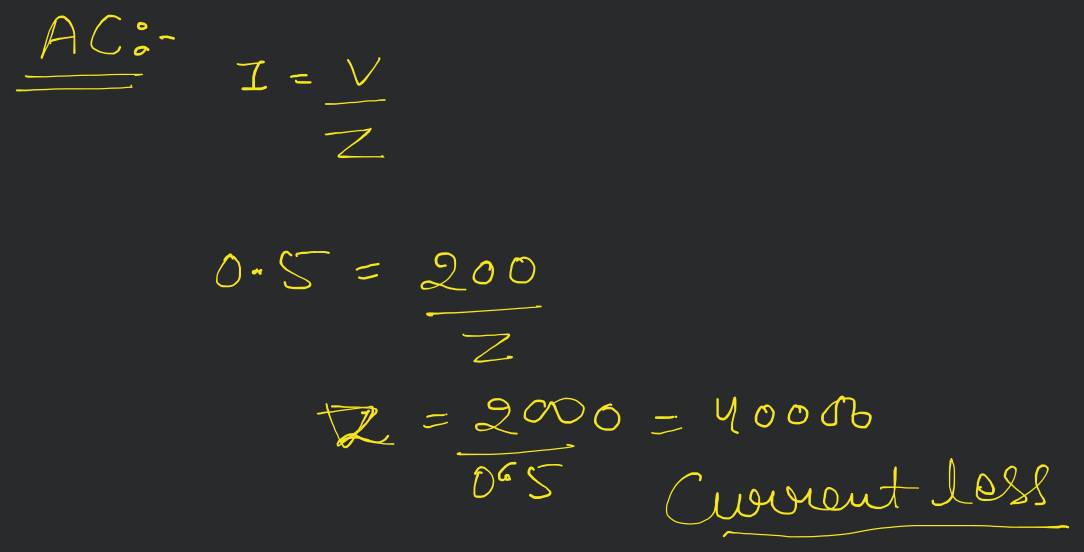 AC:-
I = V
Z
0.5 = 200
Z
Z = 2000 = 400Ω
05
Current loss